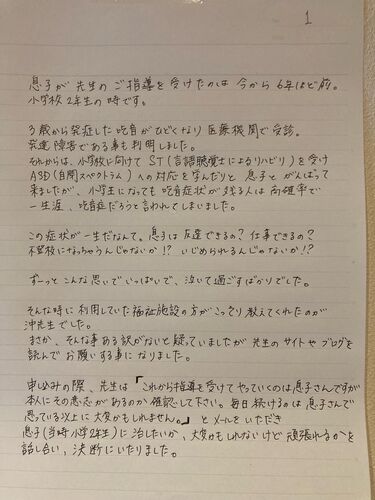 1
息子が先生のご指導を受けたのは今から6年ほど前。
小学校2年生の時です。
3歳から発症した吃音がひどくなり医療機関で受診。
発達障害である事も判明しました。
それからは、小学校に向けてST(言語聴覚士によるリハビリ)を受け
ASD(自閉スペクトラム)への対応を学んだり、息子とがんばって
来ましたが、小学生になっても吃音症状が残る人は高確率で
一生涯、吃音症だろうと言われてしまいました。
この症状が一生だなんて。息子は友達できるの?仕事できるの?
不登校になっちゃうんじゃないか!?いじめられるんじゃないか!?
ずーっとこんな思いでいっぱいで、泣いて過ごすばかりでした。
そんな時に利用していた福祉施設の方がこっそり教えてくれたのが
沖先生でした。
まさか、そんな事ある訳がないと疑っていましたが先生のサイトやブログを
読んでお願いする事になりました。
申込みの際、先生は「これから指導を受けてやっていくのは息子さんですが
本人にその意志があるのか確認して下さい。毎日続けるのは息子さんで
思っている以上に大変かもしれません。」とメールをいただき
息子(当時小学2年生)に治したいか、大変かもしれないけど頑張れるかを
話し合い、決断にいたりました。